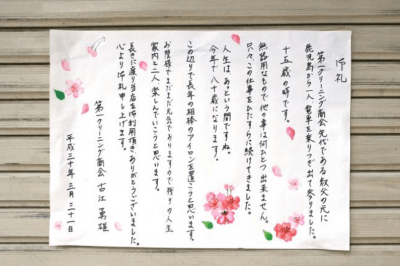 御礼
第一クリーニング商会先代である叔父の元に
鹿児島から一人電車を乗りつぎ出て参りました。
十五歳の時です。
無器用なもので他の事は何ひとつ出来ません。
只々この仕事をひたすらに続けてきました。
人生は、あっという間ですね。
今年で八十歳になります。
この辺りで長年の相棒のアイロンを置こうと思います。
お陰様でまだまだ元気でありますので残りの人生
家内と二人楽しんでいこうと思います。
長きに渡り当店を御利用頂きありがとうございました。
心より御礼申し上げます。
第一クリーニング商会 古江 勇雄
平成三十年 三月 三十一日